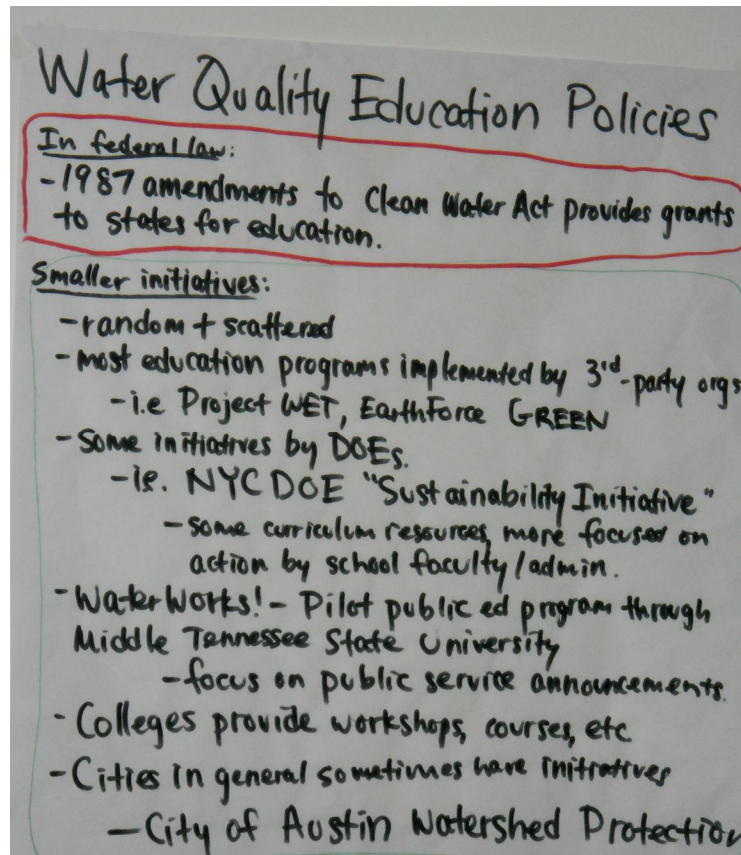 Water Quality Education Policies
In federal law:
- 1987 amendments to Clean Water Act provides grants
to states for education.
Smaller initiatives:
- random + scattered
- most education programs implemented by 3rd-party orgs
- i.e Project WET, EarthForce GREEN
- Some initiatives by DOEs.
- ie. NYC DOE "Sustainability Initiative"
- some curriculum resources, more focused on
action by school faculty/admin.
- WaterWorks! - Pilot public ed program through
Middle Tennessee State University
- focus on public service announcements.
- Colleges provide workshops, courses, etc.
- Cities in general sometimes have initiatives
- City of Austin Watershed Protection